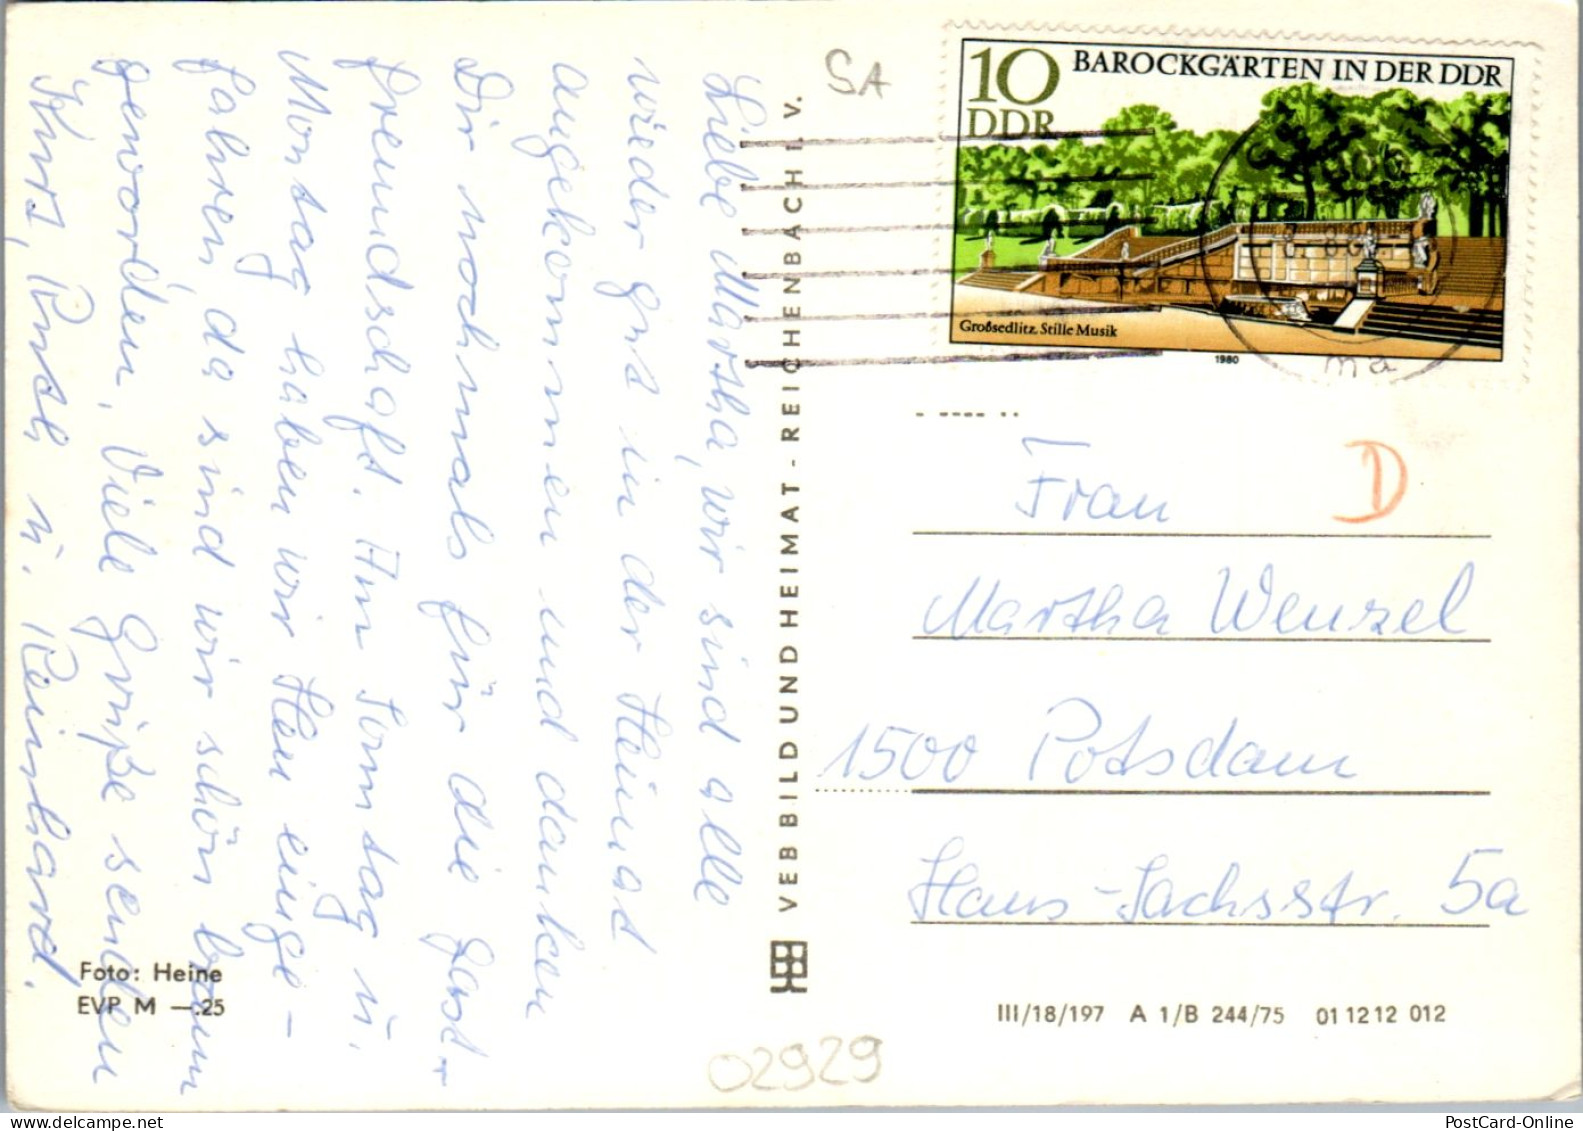 Liebe Martha, wir sind alle
wieder gut in der Heimat
angekommen und danken
Dir nochmals für die Gast-
freundschaft. Am Sonntag u.
Montag haben wir Heu einge-
fahren, da sind wir schön braun
geworden. Viele Grüße senden
Kurt, Ruth u. Reinhard.
Foto: Heine
EVP M —.25
VEB BILD UND HEIMAT - REICHENBACH I. V.
SA
10
DDR
BAROCKGÄRTEN IN DER DDR
Großsedlitz. Stille Musik
1980
ma
D
Frau
Martha Wenzel
1500 Potsdam
Hans-Sachsstr. 5a
III/18/197 A 1/B 244/75 01 12 12 012
02929
PostCard-Online